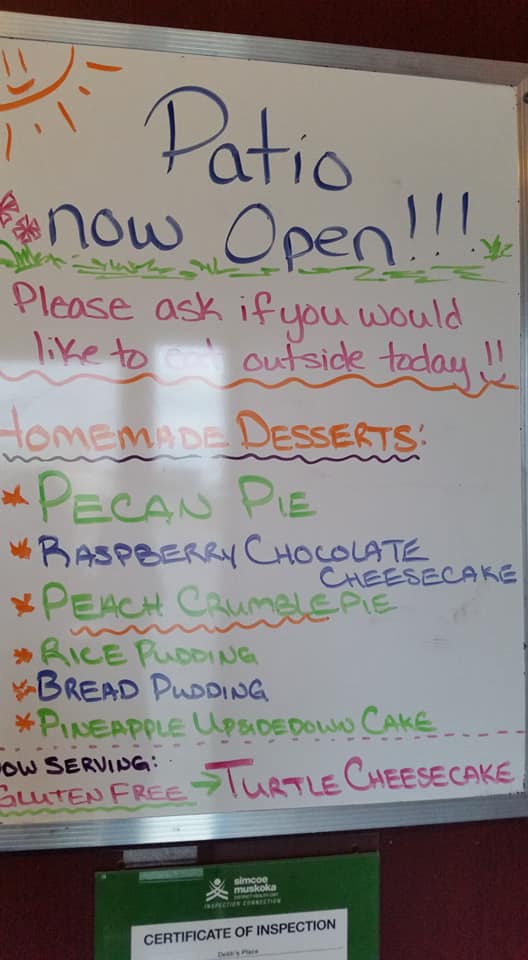 Patio
now Open!!!
Please ask if you would
like to eat outside today!!
HOMEMADE DESSERTS:
* PECAN PIE
* RASPBERRY CHOCOLATE
CHEESECAKE
* PEACH CRUMBLE PIE
* RICE PUDDING
* BREAD PUDDING
* PINEAPPLE UPSIDEDOWN CAKE
NOW SERVING:
GLUTEN FREE → TURTLE CHEESECAKE
simcoe
muskoka
DISTRICT HEALTH UNIT
INSPECTION CONNECTION
CERTIFICATE OF INSPECTION
Place